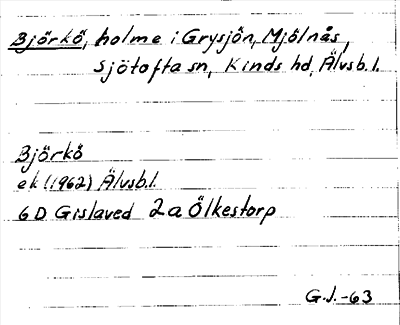 Björkö, holme i Grysjön, Mjölnås,
Sjötofta sn, Kinds hd, Älvsb. l.
Björkö
ek (1962) Älvsb. l.
6 D Gislaved 2a Ölkestorp
G.J. -63